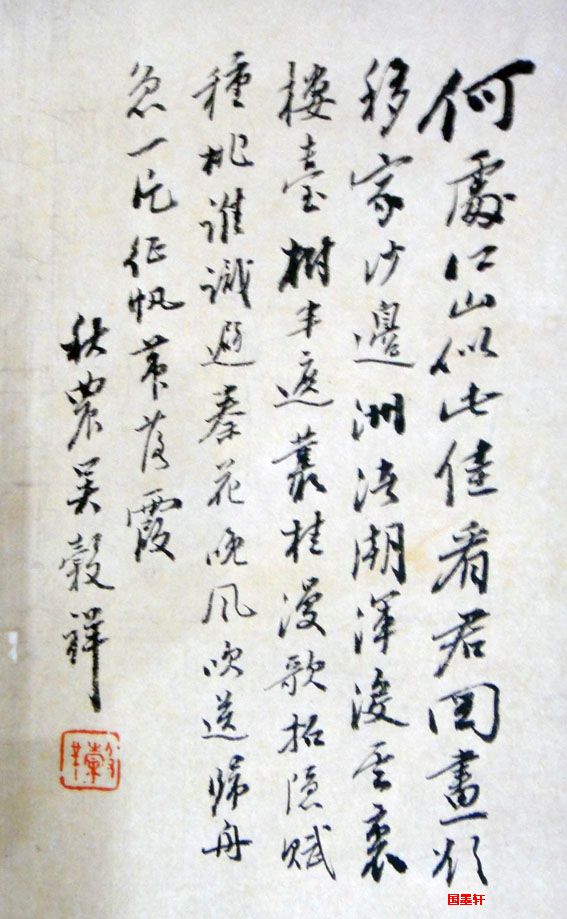 何處江山似此佳看君圖畫欲
移家沙邊洲渚潮渾沒雲裏
樓臺樹半遮叢桂漫歌招隱賦
種桃誰識避秦花晚風吹送歸舟
急一片征帆帶落霞
秋農吳穀祥
国墨轩